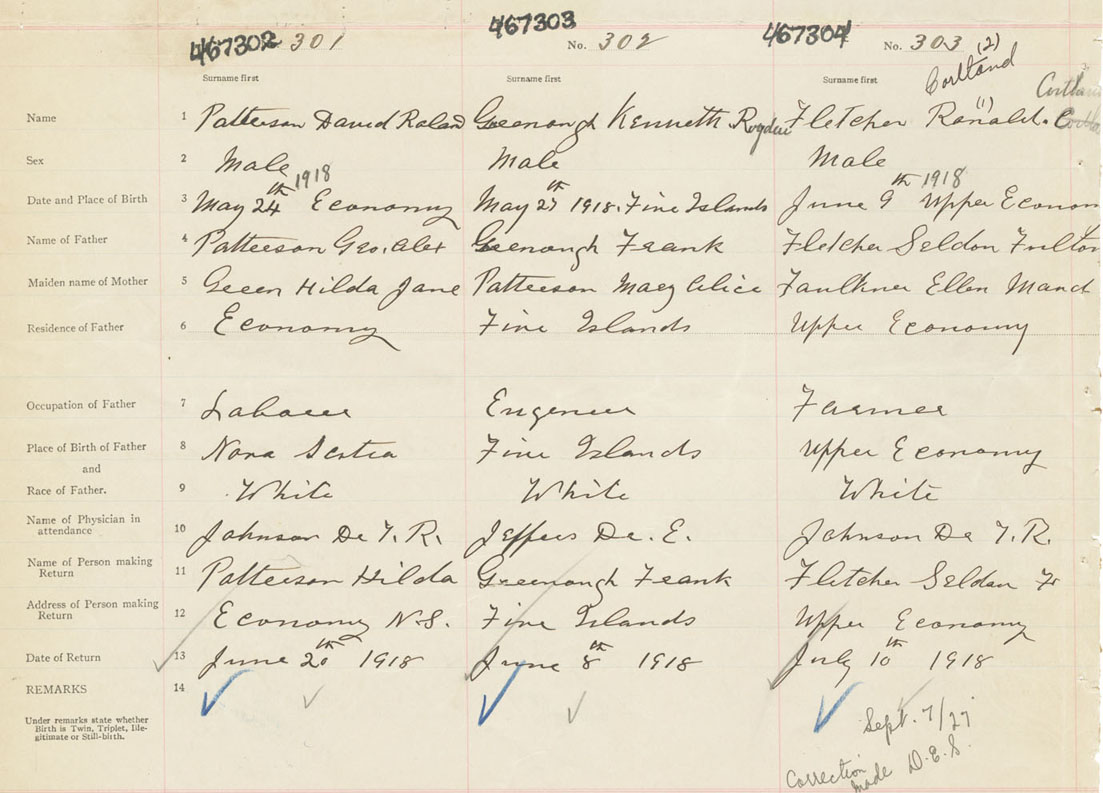 467302 301 467303 No. 302 467304 No. 303
(2)
Surname first Surname first Surname first Cortland
(1)
Name 1 Patterson David Roland Greenough Kenneth Rogden Fletcher Ronald.
Sex 2 Male Male Male
Date and Place of Birth 3 May 24th 1918 Economy May 27th 1918. Five Islands June 9th 1918 Upper Econom
Name of Father 4 Patterson Geo. Alex Greenough Frank Fletcher Seldon Fulton
Maiden name of Mother 5 Green Hilda Jane Patterson Mary Alice Faulkner Ellen Maud
Residence of Father 6 Economy Five Islands Upper Economy
Occupation of Father 7 Labourer Engeneer Farmer
Place of Birth of Father 8 Nova Scotia Five Islands Upper Economy
and
Race of Father. 9 White White White
Name of Physician in
attendance 10 Johnson Dr T. R. Jeffers Dr. E. Johnson Dr T. R.
Name of Person making
Return 11 Patterson Hilda Greenough Frank Fletcher Seldon F
Address of Person making
Return 12 Economy N.S. Five Islands Upper Economy
Date of Return 13 June 20th 1918 June 8th 1918 July 10th 1918
REMARKS 14
Under remarks state whether
Birth is Twin, Triplet, Ille-
gitimate or Still-birth.
Sept. 7/27
Correction
made D.E.S.